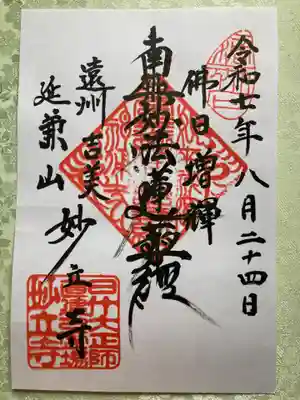 令和七年八月二十四日
佛日増輝
南無妙法蓮華経
遠州 吉美
延兼山 妙立寺
妙立寺